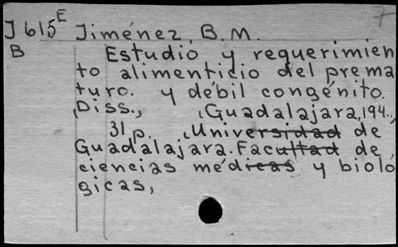 7
J615E Jiménez, B.M.
B Estudio y requerimien
to alimenticio del prema
turo. y débil congénito.
Diss., (Guadalajara, 194..
31 p. (Universidad de
Guadalajara. Facultad de
ciencias médicas y bioló
gicas,